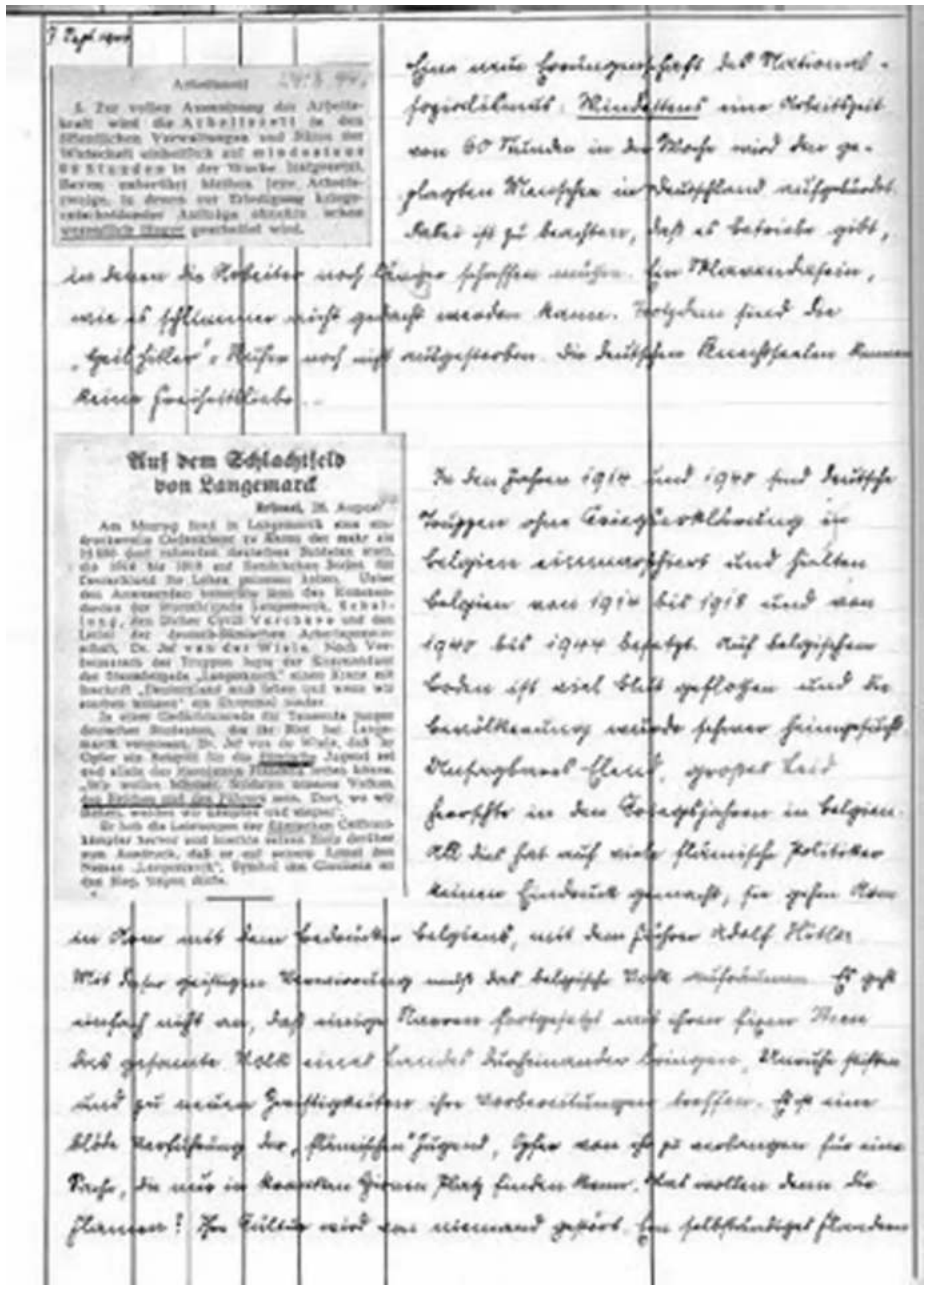 7. Sept. 1944
Arbeitszeit 24.8.44.
5. Zur vollen Ausnutzung der Arbeits-
kraft wird die Arbeitszeit in den
öffentlichen Verwaltungen und Büros der
Wirtschaft einheitlich auf mindestens
60 Stunden in der Woche festgesetzt.
Hiervon unberührt bleiben jene Arbeits-
zweige, in denen zur Erledigung kriegs-
entscheidender Aufträge ohnehin schon
wesentlich länger gearbeitet wird.
Eine neue Errungenschaft des National-
sozialismus: Mindestens eine Arbeitszeit
von 60 Stunden in der Woche wird den ge-
plagten Menschen in Deutschland aufgebürdet.
Dabei ist zu beachten, daß es Betriebe gibt,
in denen die Arbeiter noch länger schaffen müssen. Ein Sklavendasein,
wie es schlimmer nicht gedacht werden kann. Trotzdem sind die
„Heil Hitler"-Rufer noch nicht ausgestorben. Die deutschen Knechtseelen kennen
keine Freiheitsliebe...
Auf dem Schlachtfeld
von Langemarck
Brüssel, 26. August
Am Montag fand in Langemarck eine ein-
drucksvolle Gedenkfeier zu Ehren der mehr als
dort ruhenden deutschen Soldaten statt,
die 1914 bis 1918 auf flandrischem Boden für
Deutschland ihr Leben gelassen haben. Unter
den Anwesenden bemerkte man den Komman-
deur der Sturmbrigade Langemarck, Schel-
long, den Dichter Cyriel Verschaeve und den
Leiter der deutsch-flämischen Arbeitsgemein-
schaft, Dr. Jef van de Wiele. Nach
der Truppen legte der Kommandeur
der Sturmbrigade „Langemarck" einen Kranz mit
Inschrift „Deutschland muß leben und wenn wir
sterben müssen" am Ehrenmal nieder.
In einer Gedächtnisrede für Tausende junger
deutscher Studenten, die ihr Blut bei Lange-
marck vergossen, Dr. Jef van de Wiele, daß ihr
Opfer ein Beispiel für die flämische Jugend sei
und allein das Flandern retten könne.
„Wir wollen Soldaten unseres Volkes,
des Reiches und des Führers sein. Dort, wo wir
stehen, werden wir kämpfen und siegen".
Er hob die Leistungen der flämischen Ostfront-
kämpfer hervor und brachte seinen Stolz darüber
zum Ausdruck, daß er auf seinem Ärmel den
Namen „Langemarck", Symbol des Glaubens an
den Sieg, tragen dürfe.
In den Jahren 1914 und 1940 sind deutsche
Truppen ohne Kriegserklärung in
Belgien einmarschiert und hielten
Belgien von 1914 bis 1918 und von
1940 bis 1944 besetzt. Auf belgischem
Boden ist viel Blut geflossen und die
Bevölkerung wurde schwer heimgesucht.
Unsagbares Elend, großes Leid
herrschte in den Kriegsjahren in Belgien.
All dies hat auf viele flämische Politiker
keinen Eindruck gemacht, sie gehen Arm
in Arm mit dem Bedrücker Belgiens, mit dem Führer Adolf Hitler.
Mit dieser geistigen Verwirrung muß das belgische Volk aufräumen. Es geht
einfach nicht an, daß einige Narren fortgesetzt mit ihren fixen Ideen
das gesamte Volk eines Landes durcheinander bringen, Unruhe stiften
und zu neuen Zwistigkeiten ihre Vorbereitungen treffen. Es ist eine
blöde Verführung der „flämischen" Jugend, Opfer von ihr zu verlangen für eine
Sache, die nur in kranken Hirnen Platz finden kann. Was wollen denn die
Flamen? Ihre Kultur wird von niemand gestört. Ein selbständiges Flandern